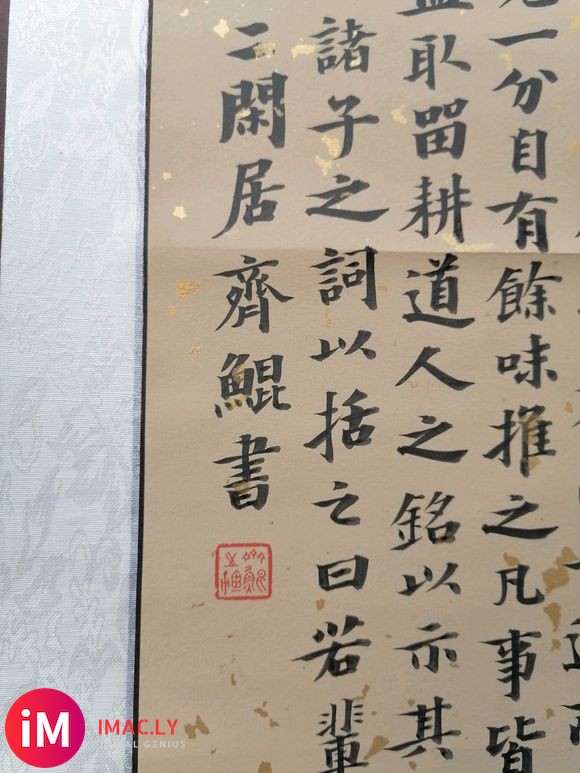 一分自有餘味推之凡事皆
取留耕道人之銘以示其
諸子之詞以括之曰若輩
二閑居齊鯤書
iM
IMAC.LY
GENIUS